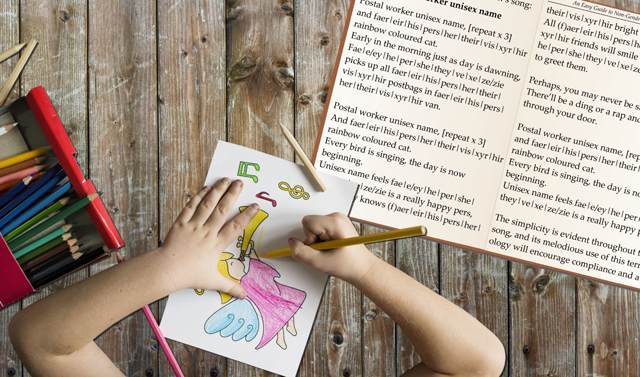 song:
worker unisex name
Postal worker unisex name, [repeat x 3]
and faer|eir|his|pers|her|their|vis|xyr|hir
rainbow coloured cat.
Early in the morning just as day is dawning,
Fae|e/ey|he|per|she|they|ve|xe|ze/zie
picks up all faer|eir|his|pers|her|their|
vis|xyr|hir postbags in faer|eir|his|pers|
her|their|vis|xyr|hir van.
Postal worker unisex name, [repeat x 3]
And faer|eir|his|pers|her|their|vis|xyr|hir
rainbow coloured cat.
Every bird is singing, the day is now
beginning.
Unisex name feels fae|e/ey|he|per|she|
ze/zie is a really happy pers,
knows (f)aer|eir|his|pers|her|
An Easy Guide to Non-Gend
their|vis|xyr|hir bright
All (f)aer|eir|his|pers
xyr|hir friends will smile
he|per|she|they|ve|xe|ze
to greet them.
Perhaps, you may never be s
There'll be a ding or a rap and
through your door.
Postal worker unisex name, [repeat x
and faer|eir|his|pers|her|their
rainbow coloured cat.
Every bird is singing, the day is no
beginning.
Unisex name feels fae|e/ey|he|per
they|ve|xe|ze/zie is a really happy p
The simplicity is evident throughout t
song, and its melodious use of this ter
ology will encourage compliance and a